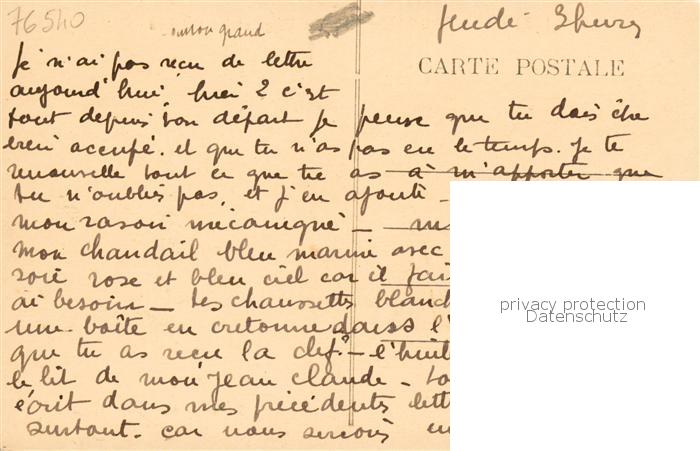 76540
Jeudi 3 heures
CARTE POSTALE
Je n'ai pas reçu de lettre
aujourd'hui, hier 2 c'est
tout depuis ton départ je pense que tu dois être
bien occupé. et que tu n'as pas eu le temps. Je te
renouvelle tout ce que tu as à m'apporter que
tu n'oublies pas, et j'en ajoute _
mon rasoir mécanique _
mon chandail bleu marine avec
soie rose et bleu ciel car il fai
ai besoin _ Les chaussettes blanch
une boîte en cretonne dans l'
que tu as reçu la clef? _ l'huil
le lit de mon Jean Claude _
écrit dans mes précédents lett
surtout. car nous serions en
privacy protection
Datenschutz